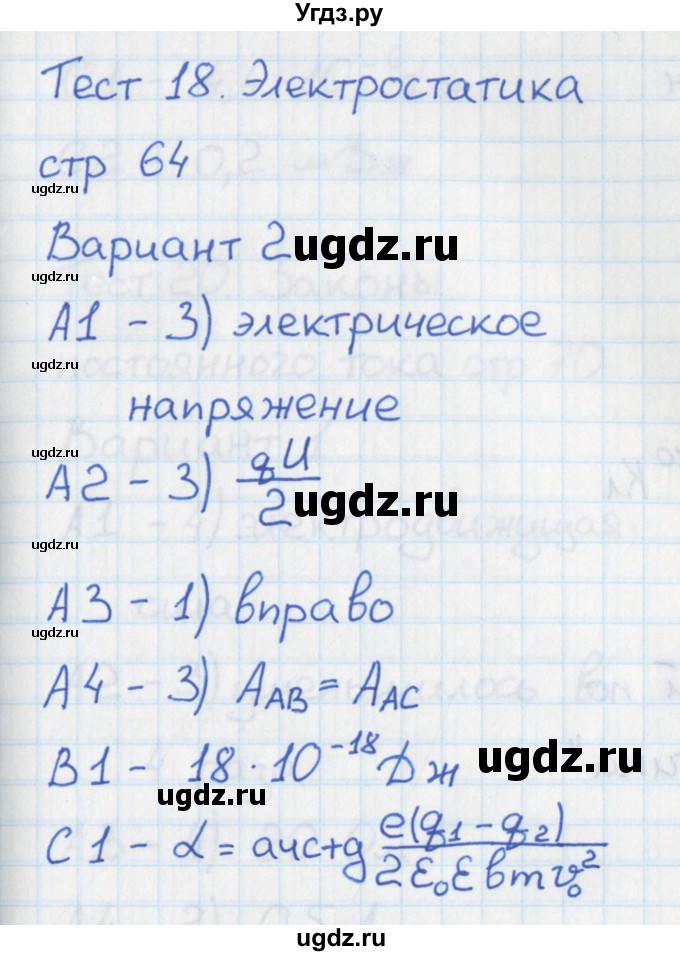 Угдз.ру
Тест 18. Электростатика
стр 64
ugdz.ru
Вариант 2 ugdz.ru
ugdz.ru
А1 - 3) электрическое
ugdz.ru
напряжение
ugdz.ru
А2 - 3) qU/2 ugdz.ru
ugdz.ru
А3 - 1) вправо
ugdz.ru
А4 - 3) A_AB = A_AC
В1 - 18·10⁻¹⁸ Дж ugdz.ru
ugdz.ru
С1 - α = aчc+g e(q₁-q₂)/2ε₀εвmv₀²
ugdz.ru